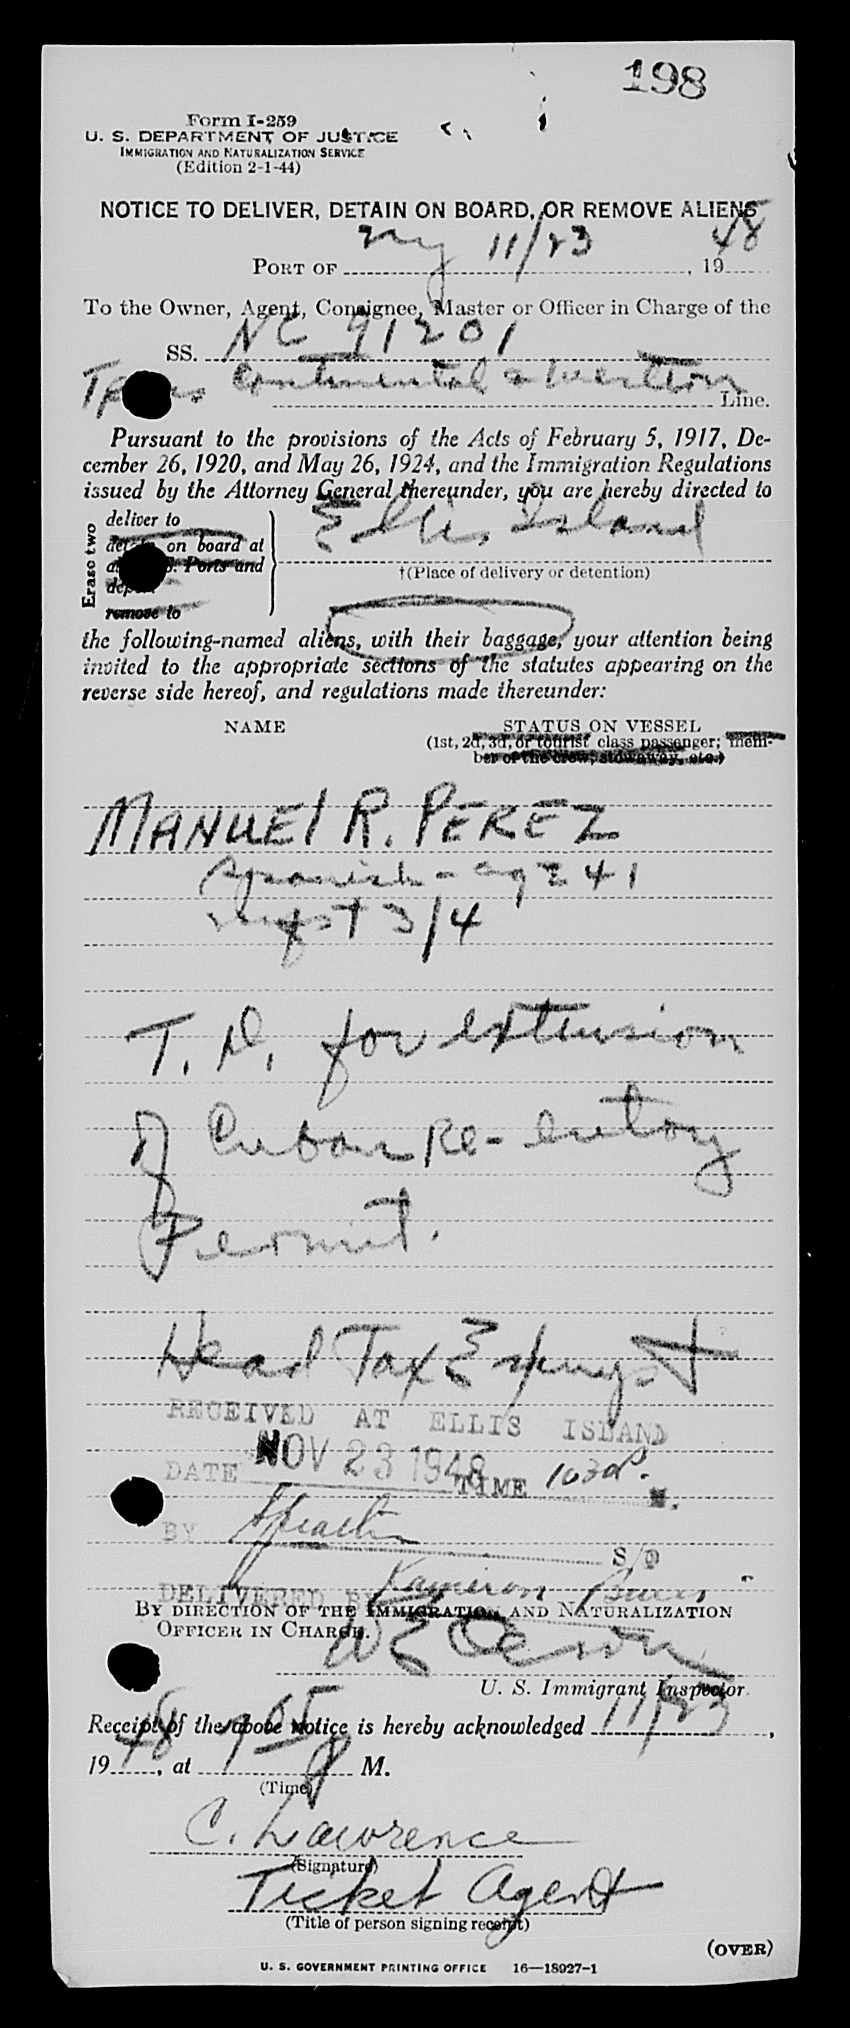 198
Form I-259
U. S. DEPARTMENT OF JUSTICE
IMMIGRATION AND NATURALIZATION SERVICE
(Edition 2-1-44)
NOTICE TO DELIVER, DETAIN ON BOARD, OR REMOVE ALIENS
PORT OF NY 11/23, 1948
To the Owner, Agent, Consignee, Master or Officer in Charge of the
SS. NC 91201
Continental & Western Line.
Pursuant to the provisions of the Acts of February 5, 1917, De-
cember 26, 1920, and May 26, 1924, and the Immigration Regulations
issued by the Attorney General thereunder, you are hereby directed to
Erase two
deliver to
on board at
Ports and
remove to
Ellis Island
†(Place of delivery or detention)
the following-named aliens, with their baggage, your attention being
invited to the appropriate sections of the statutes appearing on the
reverse side hereof, and regulations made thereunder:
NAME STATUS ON VESSEL
(1st, 2d, 3d, or tourist class passenger; mem-
ber of the crew, stowaway, etc.)
MANUEl R. PEREZ
Spanish - age 41
3/4
T. D. for extension
of Cuban Re-entry
Permit.
Head Tax
RECEIVED AT ELLIS ISLAND
DATE NOV 23 1948 TIME 1030P. M.
BY
S/O
DELIVERED BY
BY DIRECTION OF THE IMMIGRATION AND NATURALIZATION
OFFICER IN CHARGE.
U. S. Immigrant Inspector.
Receipt of the above notice is hereby acknowledged 11/23,
1948, at 705 P M.
(Time)
C. Lawrence
(Signature)
Ticket Agent
(Title of person signing receipt)
(OVER)
U. S. GOVERNMENT PRINTING OFFICE 16—18927-1